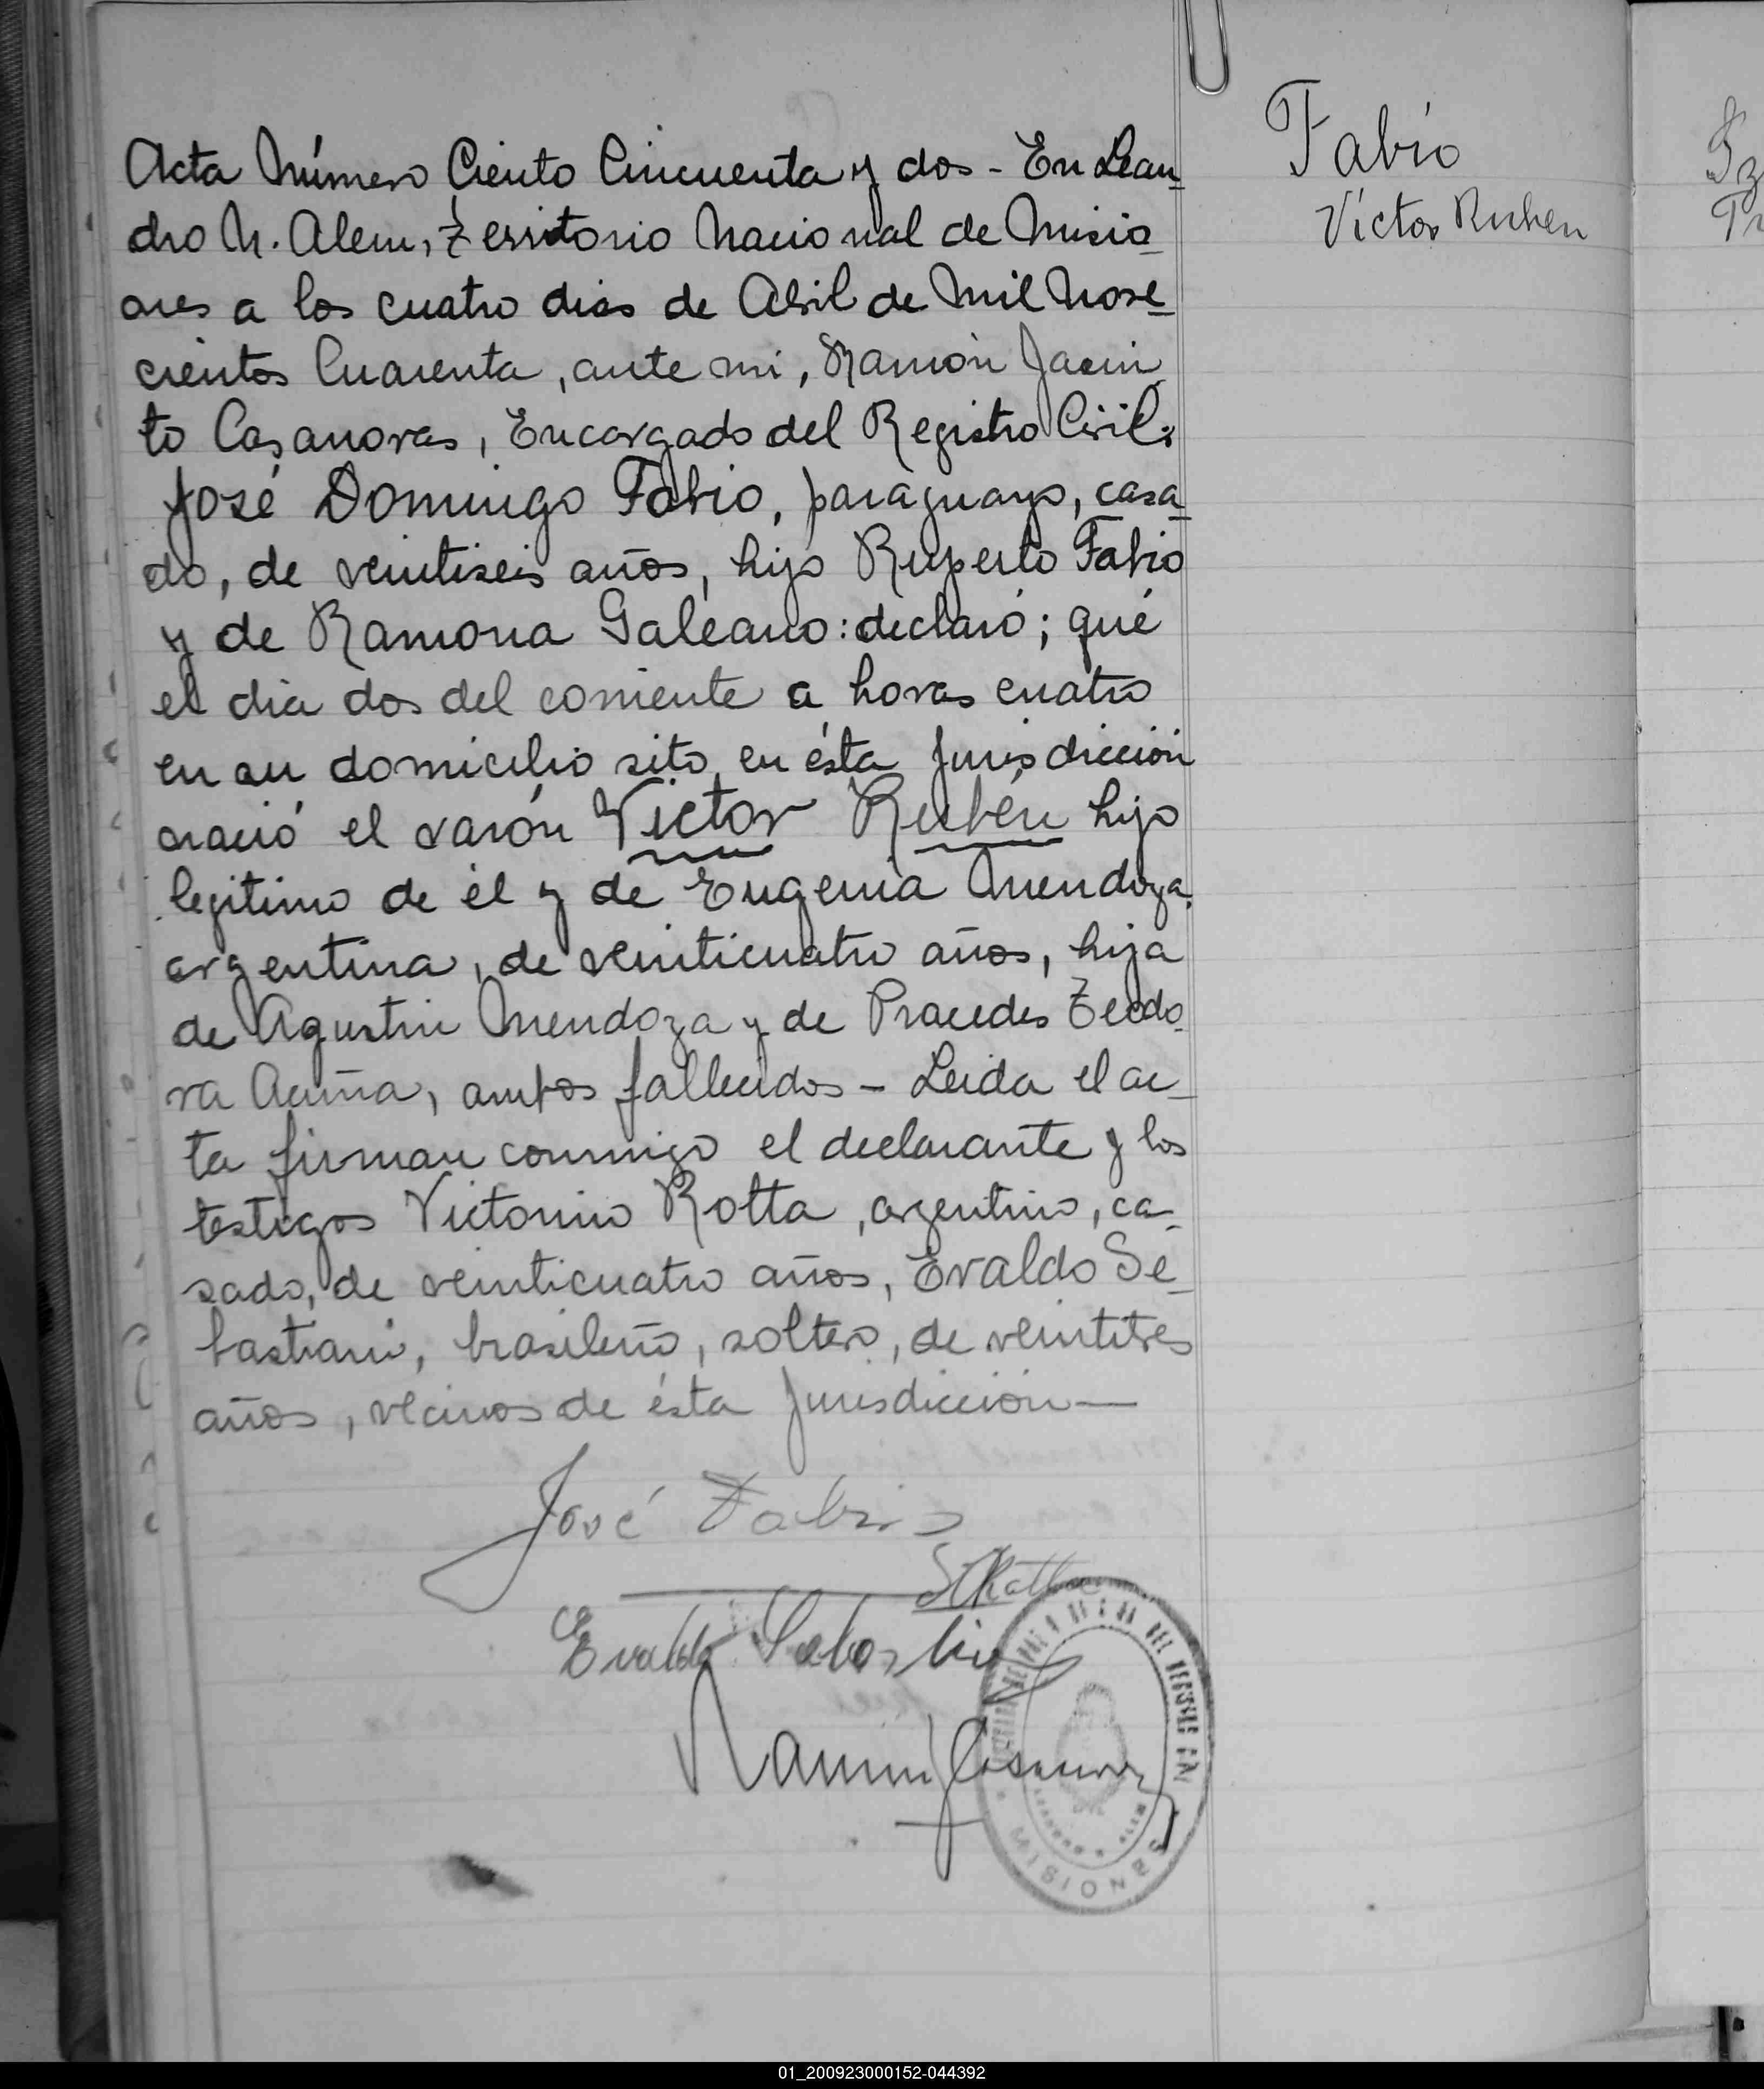 Acta Número Ciento Cincuenta y dos - En Lean
dro N. Alem, Territorio Nacional de Misio
nes a los cuatro dias de Abril de Mil Nove
cientos Cuarenta, ante mi, Ramón Jacin
to Casanovas, Encargado del Registro Civil:
José Domingo Fabio, paraguayo, casa
do, de veintiseis años, hijo Ruperto Fabio
y de Ramona Galeano: declaró; qué
el dia dos del corriente a horas cuatro
en su domicilio sito en ésta Jurisdicción
nació el varón Victor Rubén hijo
legitimo de él y de Eugenia Mendoza,
argentina, de veinticuatro años, hija
de Agustin Mendoza y de Pracedes Teodo
ra Acuña, ambos fallecidos - Leida el ac
ta firman conmigo el declarante y los
testigos Victorino Rotta, argentino, ca
sado, de veinticuatro años, Evaldo Se
bastiani, brasileño, soltero, de veintitres
años, vecinos de ésta Jurisdicción—
José Fabio
Evaldo
Ramón J Casanovas
MISIONES
Fabio
Víctor Ruben
01_200923000152-044392